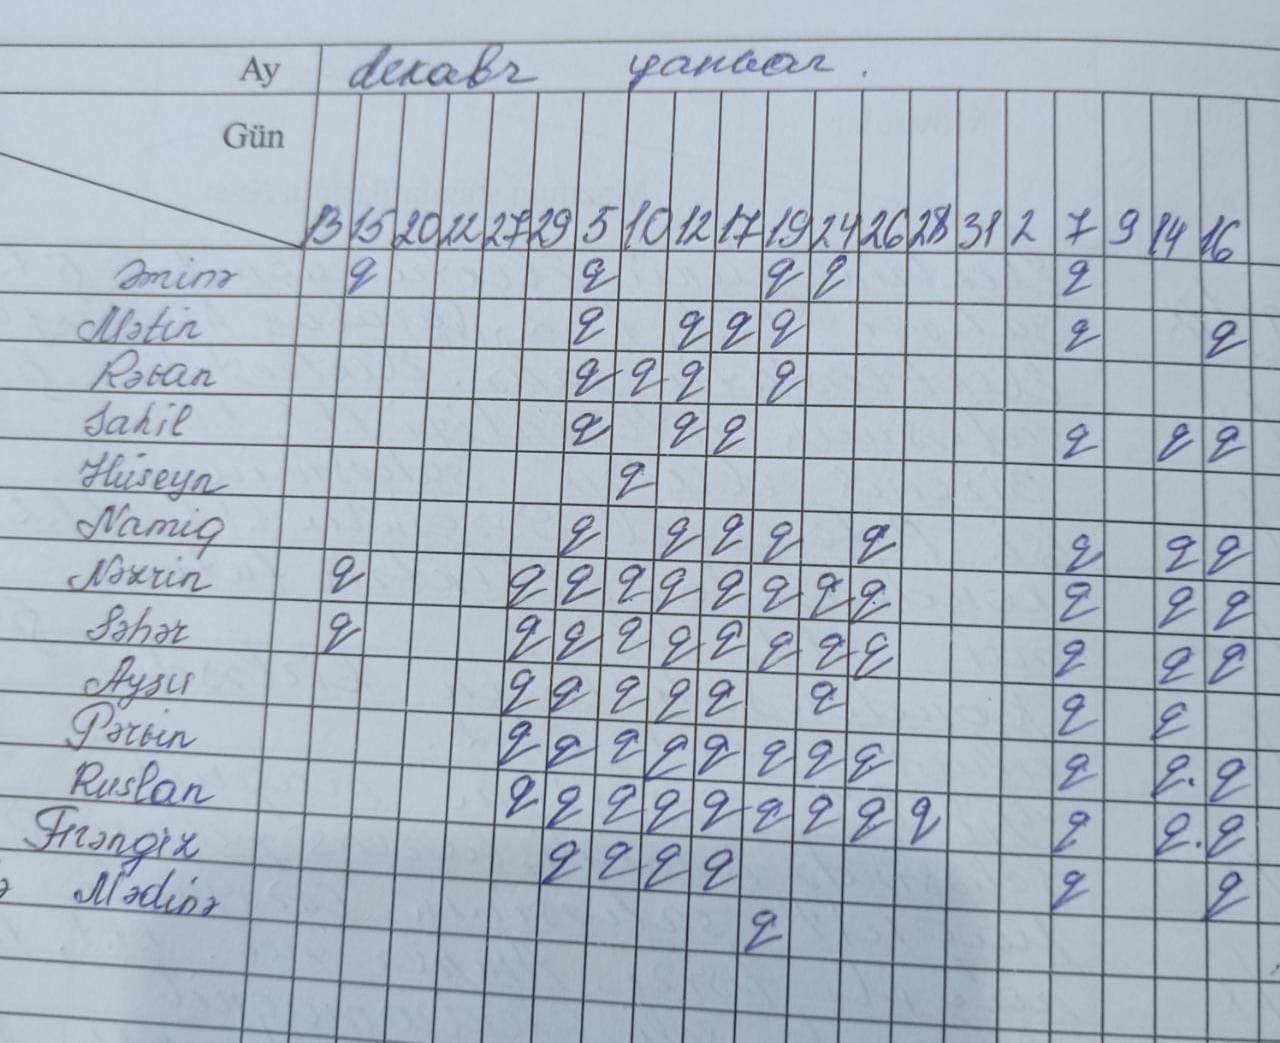 Ay декабг январ.
Gün
13 15 20 22 27 29 5 10 12 17 19 24 26 28 31 2 7 9 14 16
Əminə q q q q q
Mətin q q q q q q
Rəvan q q q q
Sahil q q q q q q
Hüseyn q
Namiq q q q q q q q q
Nəzrin q q q q q q q q q q q q
Səhər q q q q q q q q q q q q
Aysu q q q q q q q q
Pərvin q q q q q q q q q q. q
Ruslan q q q q q q q q q q q. q
Frəngiz q q q q q q
ə Mədinə q